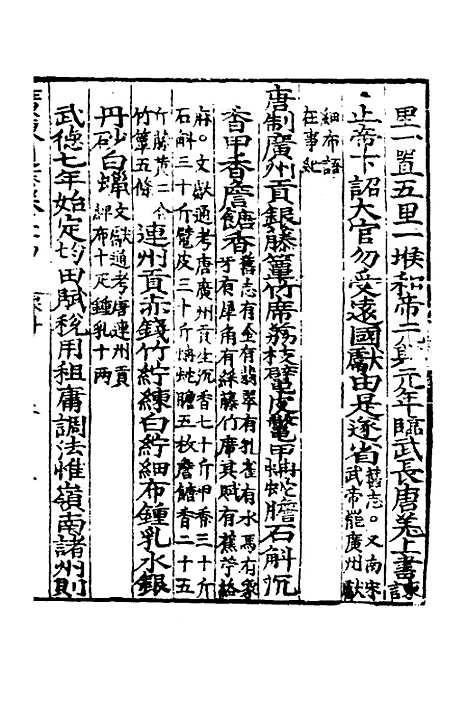 里一置五里一堠和帝元興元年臨武長唐羌上書諫
止帝下詔太官勿受遠國獻由是遂省舊志。又南宋武帝罷廣州獻
細布語在事紀
唐制廣州貢銀藤簟竹席荔枝鼊皮鼈甲蚺蛇膽石斛沉
香甲香詹糖香舊志有金有翡翠有孔雀有水馬有象牙有犀角有綵藤竹席其賦有蕉苧給
麻。文獻通考唐廣州貢生沉香七十斤甲香三十斤石斛三十斤鼊皮三十斤蚺蛇膽五枚詹糖香二十五
斤藤黃二 竹簟五條連州貢赤錢竹紵練白紵細布鍾乳水銀
丹砂白蠟文獻通考唐連州貢 布十疋鍾乳十兩
武德七年始定均田賦稅用租庸調法惟嶺南諸州則